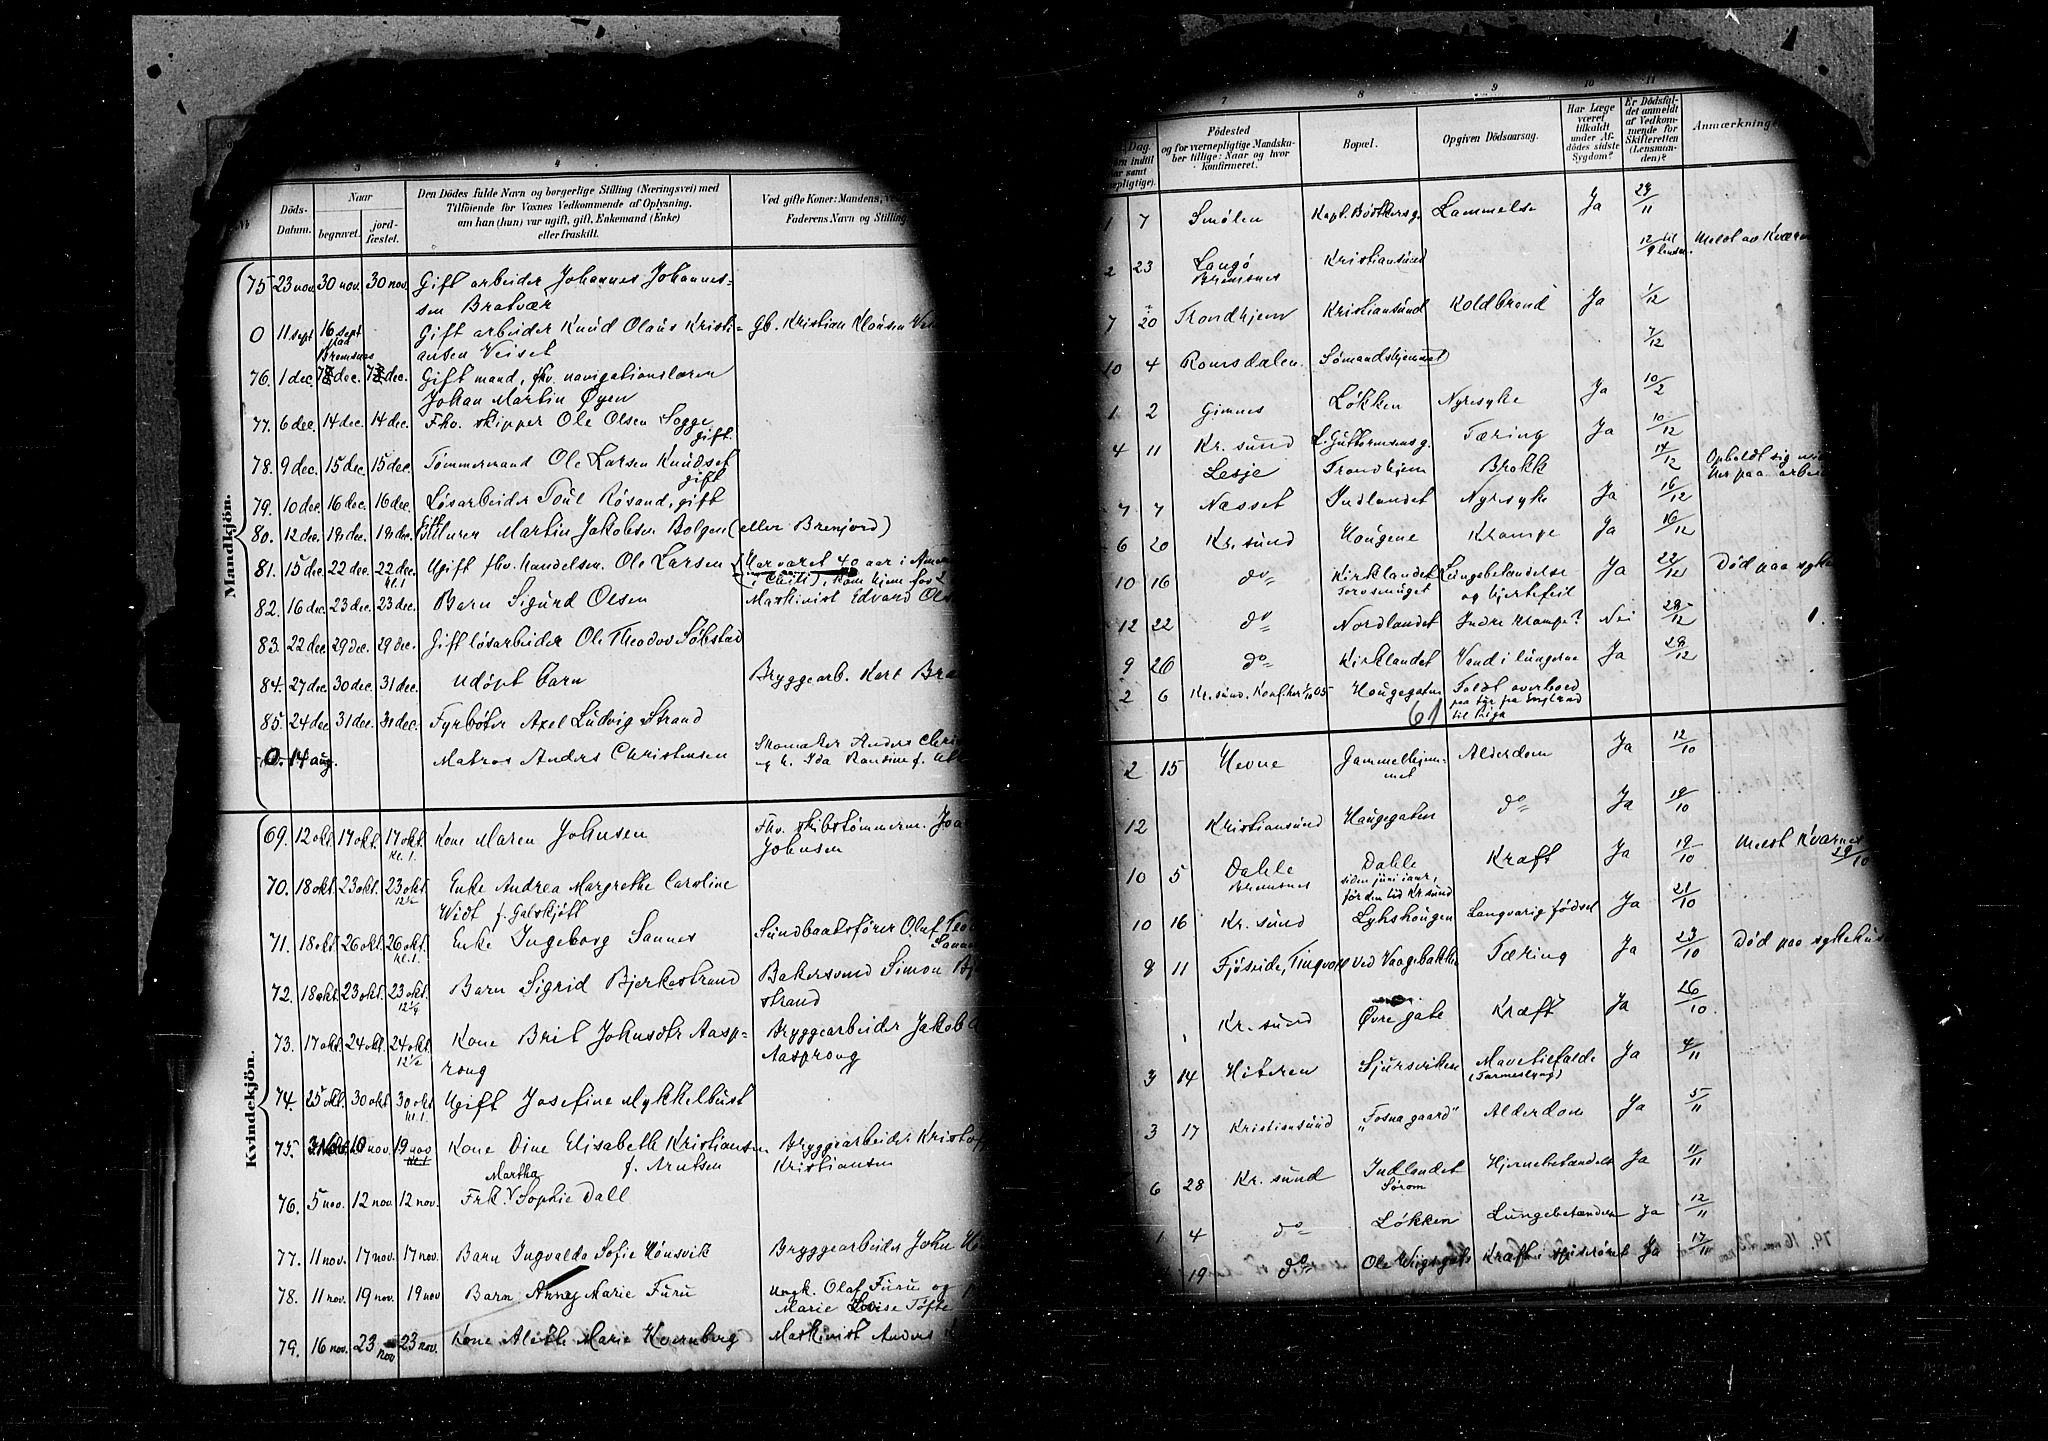 3
4
№
Döds-
Datum.
Naar
begravet.
jord-
fæstet.
Den Dödes fulde Navn og borgerlige Stilling (Næringsvei) med
Tilföiende for Voxnes Vedkommende af Oplysning,
om han (hun) var ugift, gift, Enkemand (Enke)
eller fraskilt.
Ved gifte Koner: Mandens,
Faderens Navn og Stilling
Mandkjön.
75 23 nov. 30 nov. 30 nov. Gift arbeider Johannes Johannes-
sen Bratvær
0 11 sept 16 sept Gift arbeider Knud Olaus Kristi- Gb. Kristian
paa
Bremsnes ansen Veiset
76. 1 dec. dec. dec. Gift mand, fhv. navigationslærer
Johan Martin Øyen
77. 6 dec. 14 dec. 14 dec. Fhv. skipper Ole Olsen Sogge
gift.
78. 9 dec. 15 dec. 15 dec. Tømmermand Ole Larsen Knudset
gift
79. 10 dec. 16 dec. 16 dec. Løsarbeider Røsand, gift
80. 12 dec. 19 dec. 19 dec. Martin Jakobsen Bolgen (eller Brenjord)
81. 15 dec. 22 dec. 22 dec. Ugift fhv. handelsm. Ole Larsen (Har været 40 aar i
kl. 1 i Chili), kom hjem for
82. 16 dec. 23 dec. 23 dec. Barn Sigurd Olsen Maskinist Edvard
83. 22 dec. 29 dec. 29 dec. Gift løsarbeider Ole Theodor Søbstad
84. 27 dec. 30 dec. 31 dec. Udøpt barn Bryggearb. Karl
85. 24 dec 31 dec. 31 dec. Fyrbøter Axel Ludvig Strand
0. 14 aug. Matros Anders Christensen Skomaker Anders
og h. Ida
Kvindekjön.
69. 12 okt. 17 okt. 17 okt. Kone Maren Johnsen Fhv. skibstømmerm.
kl. 1. Johnsen
70. 18 okt. 23 okt. 23 okt. Enke Andrea Margrethe Caroline
12½
Widt f. Galskjøtt
71. 18 okt 26 okt. 26 okt. Enke Ingeborg Sannes Sundbaatfører Oluf
kl. 1.
72. 18 okt. 23 okt. 23 okt. Barn Sigrid Bjerkestrand Bakersvend Simon
12¼ strand
73. 17 okt. 24 okt. 24 okt. Kone Brit Johnsdtr Aasp- Bryggearbeider Jakob
12½ rong Aasprong
74. 25 okt. 30 okt 30 okt Ugift Josefine Mykkelbust
kl. 1.
75. nov. 19 nov Kone Dine Elisabeth Kristiansen Bryggearbeider
f. Arntsen Kristiansen
Martha
76. 5 nov. 12 nov. 12 nov. Frk. Sophie Dall
77. 11 nov. 17 nov. 17 nov. Barn Ingvalda Sofie Honsvik Bryggearbeider John
78. 11 nov. 19 nov. 19 nov Barn Marie Furu Ungk. Olaf Furu og
Marie Tøfte
79. 16 nov. 23 nov 23 nov. Kone Aleth Marie Kvernberg Maskinist Anders
7
8
9
10
11
Dag.
Födested
og for værnepligtige Mandska-
ber tillige: Naar og hvor
konfirmeret.
Bopæl.
Opgiven Dödsaarsag.
Har Læge
været
tilkaldt
under Af-
dödes sidste
Sygdom?
Er Dödsfal-
det anmeldt
af Vedkom-
mende for
Skifteretten
(Lensman-
den)?
Anmærkninger
1 7 Smølen Kapt. Bødtkersg. Lammelse Ja 24/11
2 23 Langø Kristiansund 12/9 til lensm. Meldt av
Bremsnes
7 20 Trondhjem Kristiansund Koldbrand Ja 1/12
10 4 Romsdalen. Sømandshjemmet 7/12
1 2 Gimnes Løkken Nyresyke Ja 10/2
4 11 Kr. sund L. Guttormsensg. Tæring Ja 10/12
Lesje Trondhjem Brokk 14/12 Opholdt sig
her paa
7 7 Næsset Indlandet Nyresyke Ja 16/12
6 20 Kr. sund Haugene Krampe Ja 16/12
10 16 do Kirklandet Lungebetændelse Ja 22/12 Død paa
og hjertefeil
12 22 do Nordlandet Indre krampe? Nei 28/12 1.
9 26 do Kirklandet Vand i lungerne Ja 29/12
2 6 Kr. sund. Konf. her 1/10 05 Haugegaten Faldt overbord
til Riga
61
2 15 Hevne Gammelhjem- Alderdom Ja 12/10
met
12 Kristiansund Haugegaten do Ja 19/10
10 5 Dahle Dahle Kræft Ja 19/10 Meldt Kværnes
Bremsnes siden juni iaar, 29/10
før den tid Kr. sund
10 16 Kr. sund Lykshaugen Langvarig fødsel Ja 21/10
8 11 Fjøseide, Tingvoll ved Vaagebakken Tæring Ja 23/10 Død paa
Kr. sund Øvre gate Kræft Ja 26/10.
3 14 Hiteren Sjursviken Mavetilfælde Ja 4/11
(Tarmeslyng)
3 17 Kristiansund „Fosnagaard" Alderdom Ja 5/11
6 28 Kr. sund Indlandet Hjernebetændelse Ja 11/11
1 4 do Løkken Lungebetændelse Ja 12/11
19 do Ole Vigsgate Kræft i spiserøret Ja 17/11